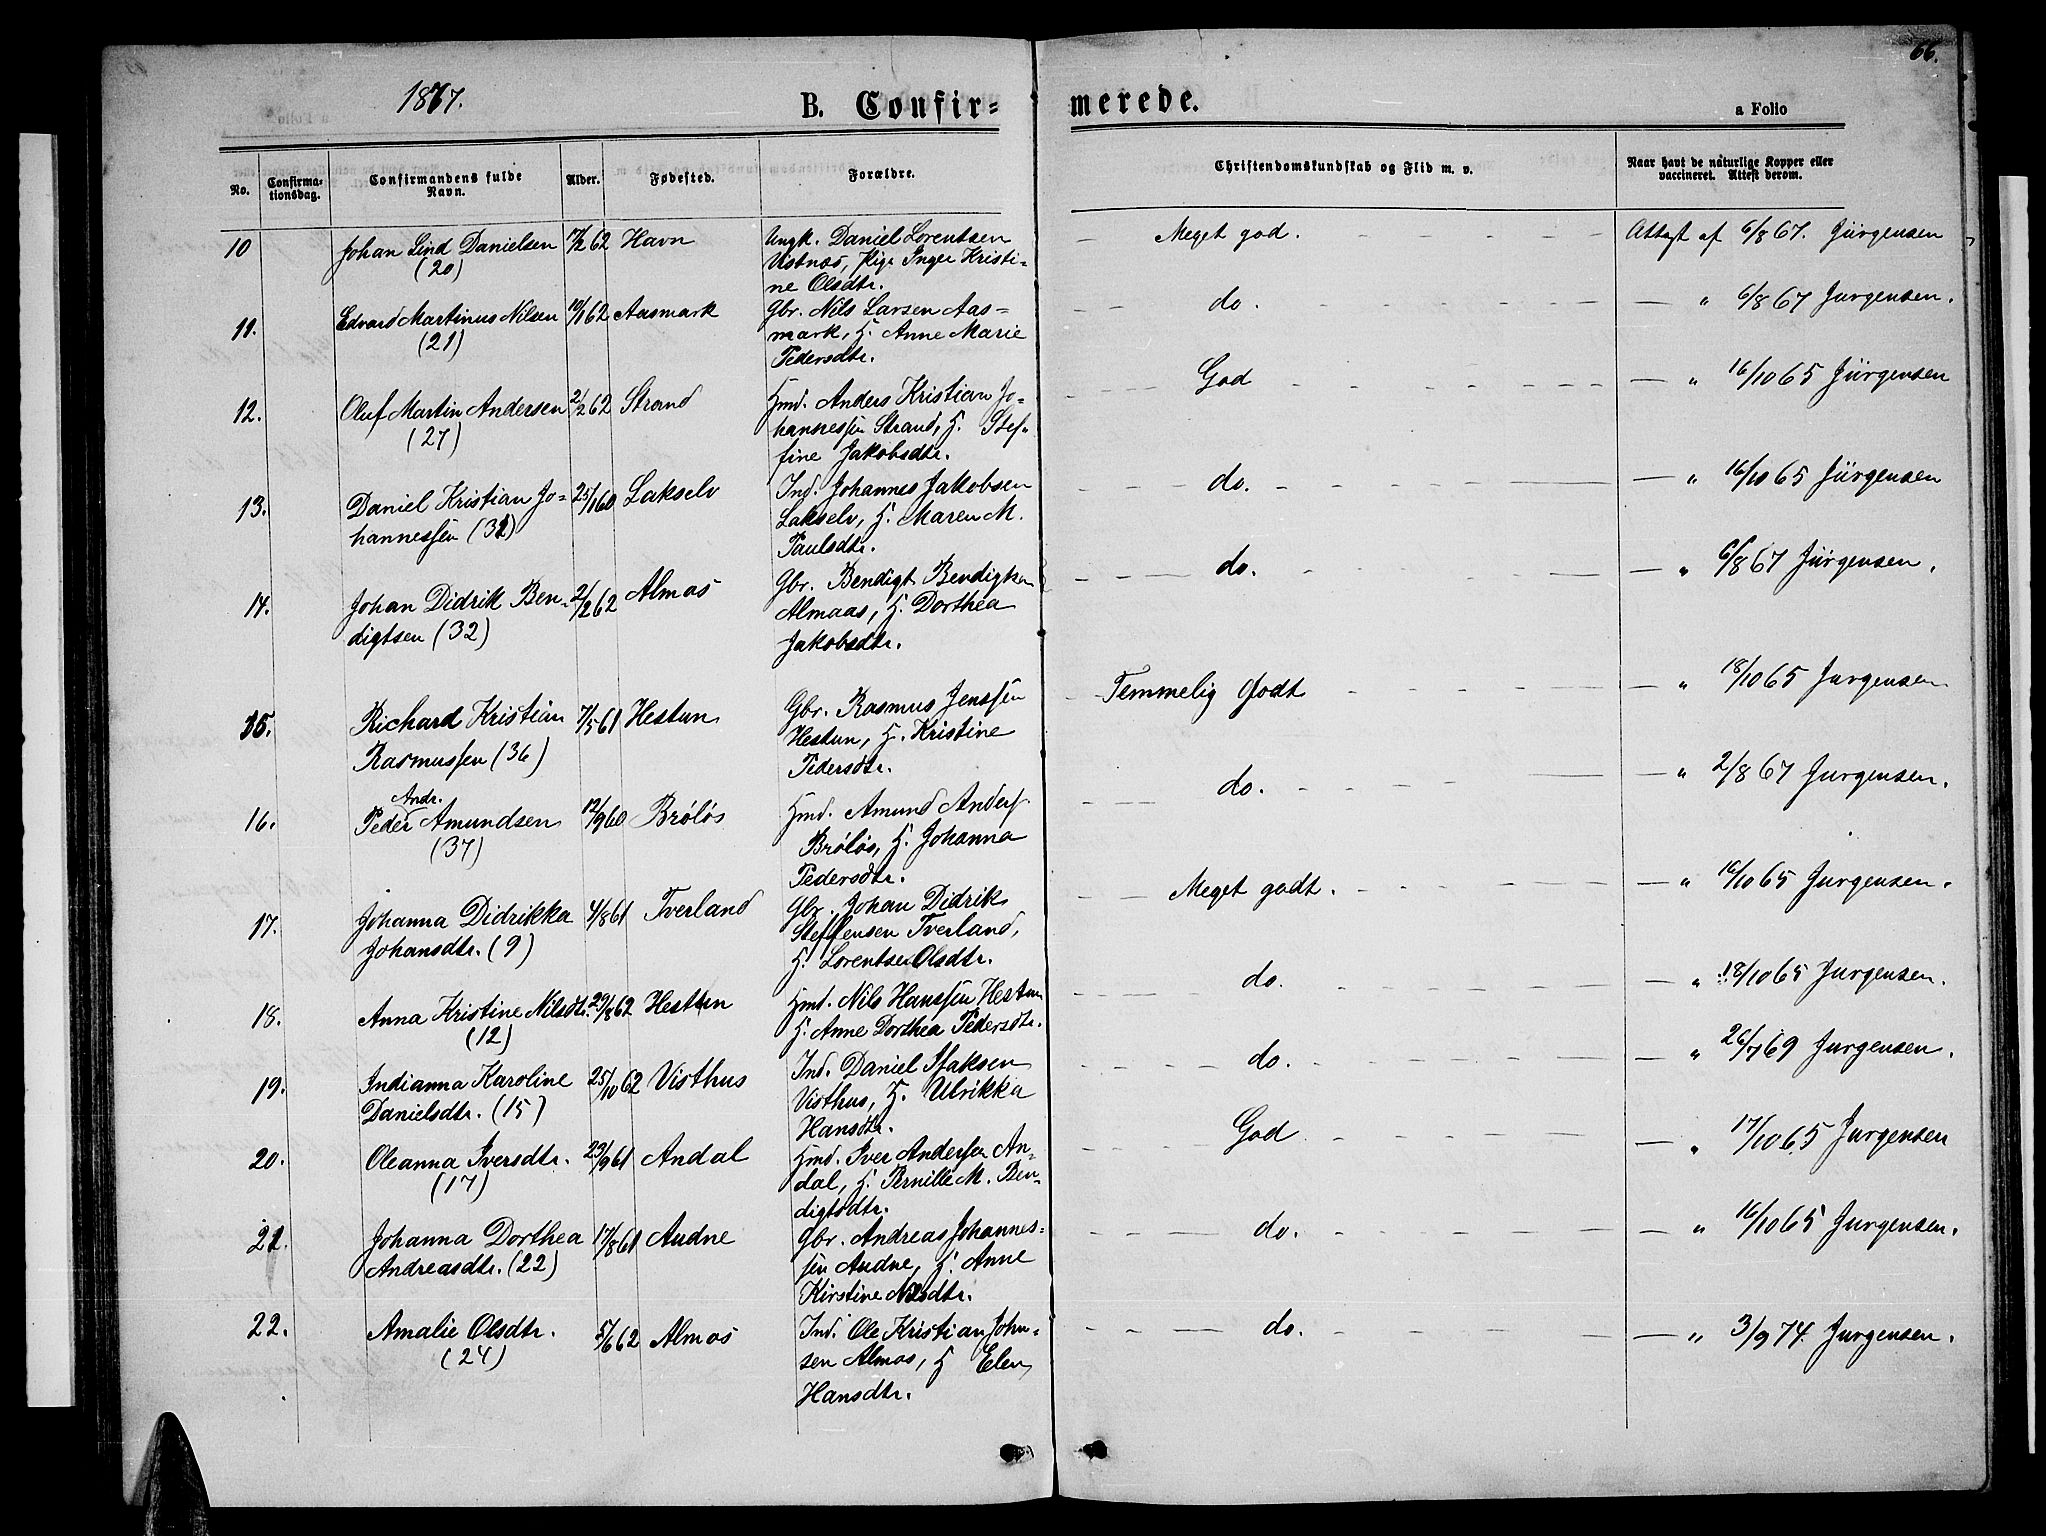 66.
1877.
B. Confir=
merede.
a Folio
No.
Confirma=
tionsdag.
Confirmandens fulde
Navn.
Alder.
Fødested.
Forældre.
Christendomskundskab og Flid m. v.
Naar havt de naturlige Kopper eller
vaccineret. Attest derom.
10 Johan Lind Danielsen 17/2 62 Havn Ungk. Daniel Lorentsen — Meget god. Attest af 6/8 67. Jürgensen
(20) Vistnæs, Pige Inger Kristi=
ne Olsdtr.
11. Edvard Martinus Nilsen 10/1 62 Aasmark Gbr. Nils Larsen Aas= — do. — " 6/8 67 Jurgensen.
(21) mark, H. Anne Marie
Pedersdtr.
12. Oluf Martin Andersen 2/2 62 Strand Hmd. Anders Kristian Jo= — God — " 16/10 65 Jürgensen
(27) hannessen Strand, H. Stef=
fine Jakobsdtr.
13. Daniel Kristian Jo= 25/1 60 Lakselv Ind. Johannes Jakobsen — do. — " 16/10 65 Jürgensen
hannessen (31) Lakselv, H. Maren M.
Paulsdtr.
14. Johan Didrik Ben= 2/2 62 Almos Gbr. Bendigt Bendigtsen — do. — " 6/8 67 Jürgensen.
digtsen (32) Almaas, H. Dorthea
Jakobsdtr.
15. Richard Kristian 7/5 61 Hestun Gbr. Rasmus Jenssen — Temmelig Godt — " 18/10 65 Jurgensen
Rasmussen (36) Hestun, H. Kristine
Pedersdtr.
Andr.
16. Peder Amundsen 12/9 60 Bröløs Hmd. Amund Anders. — do. — " 2/8 67 Jurgensen.
(37) Bröløs, H. Johanna
Pedersdtr.
17. Johanna Didrikka 4/8 61 Tverland Gbr. Johan Didrik — Meget godt. — " 16/10 65 Jurgensen.
Johansdtr. (9) Steffensen Tverland,
H. Lorentse Olsdtr.
18. Anna Kristine Nilsdtr. 29/8 62 Hestun Hmd. Nils Hanssen Hestun — do. — " 18/10 65 Jurgensen.
(12) H. Anne Dorthea Pedersdtr.
19. Indianna Karoline 25/10 62 Visthus Ind. Daniel Isaksen — do. — " 26/7 69 Jurgensen.
Danielsdtr. (15) Visthus, H. Ulrikka
Hansdtr.
20. Oleanna Iversdtr. 23/9 61 Andal Hmd. Iver Andersen An= — God — " 17/10 65 Jurgensen
(17) dal, H. Pernille M. Ben=
digtsdtr.
21. Johanna Dorthea 17/8 61 Audne Gbr. Andreas Johannes= — do. — " 16/10 65 Jurgensen.
Andreasdtr. (22) sen Audne, H. Anne
Kirstine Nilsdtr.
22. Amalie Olsdtr. 5/6 62 Almos Ind. Ole Kristian John= — do. — " 3/9 74. Jurgensen.
(24) sen Almos, H. Elen
Hansdtr.